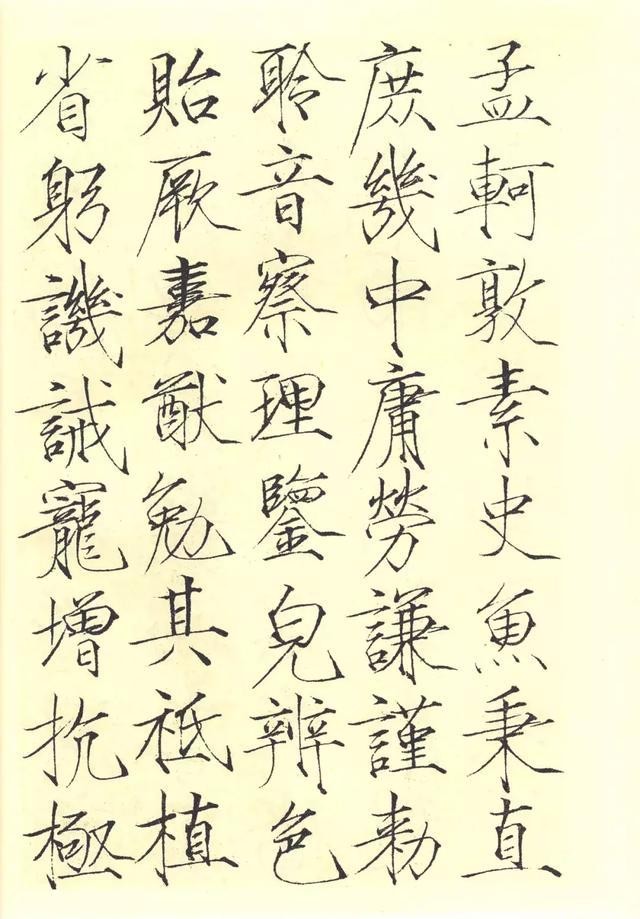 孟軻敦素史魚秉直
庶幾中庸勞謙謹勑
聆音察理鑒皃辨色
貽厥嘉猷勉其祗植
省躬譏誡寵增抗極